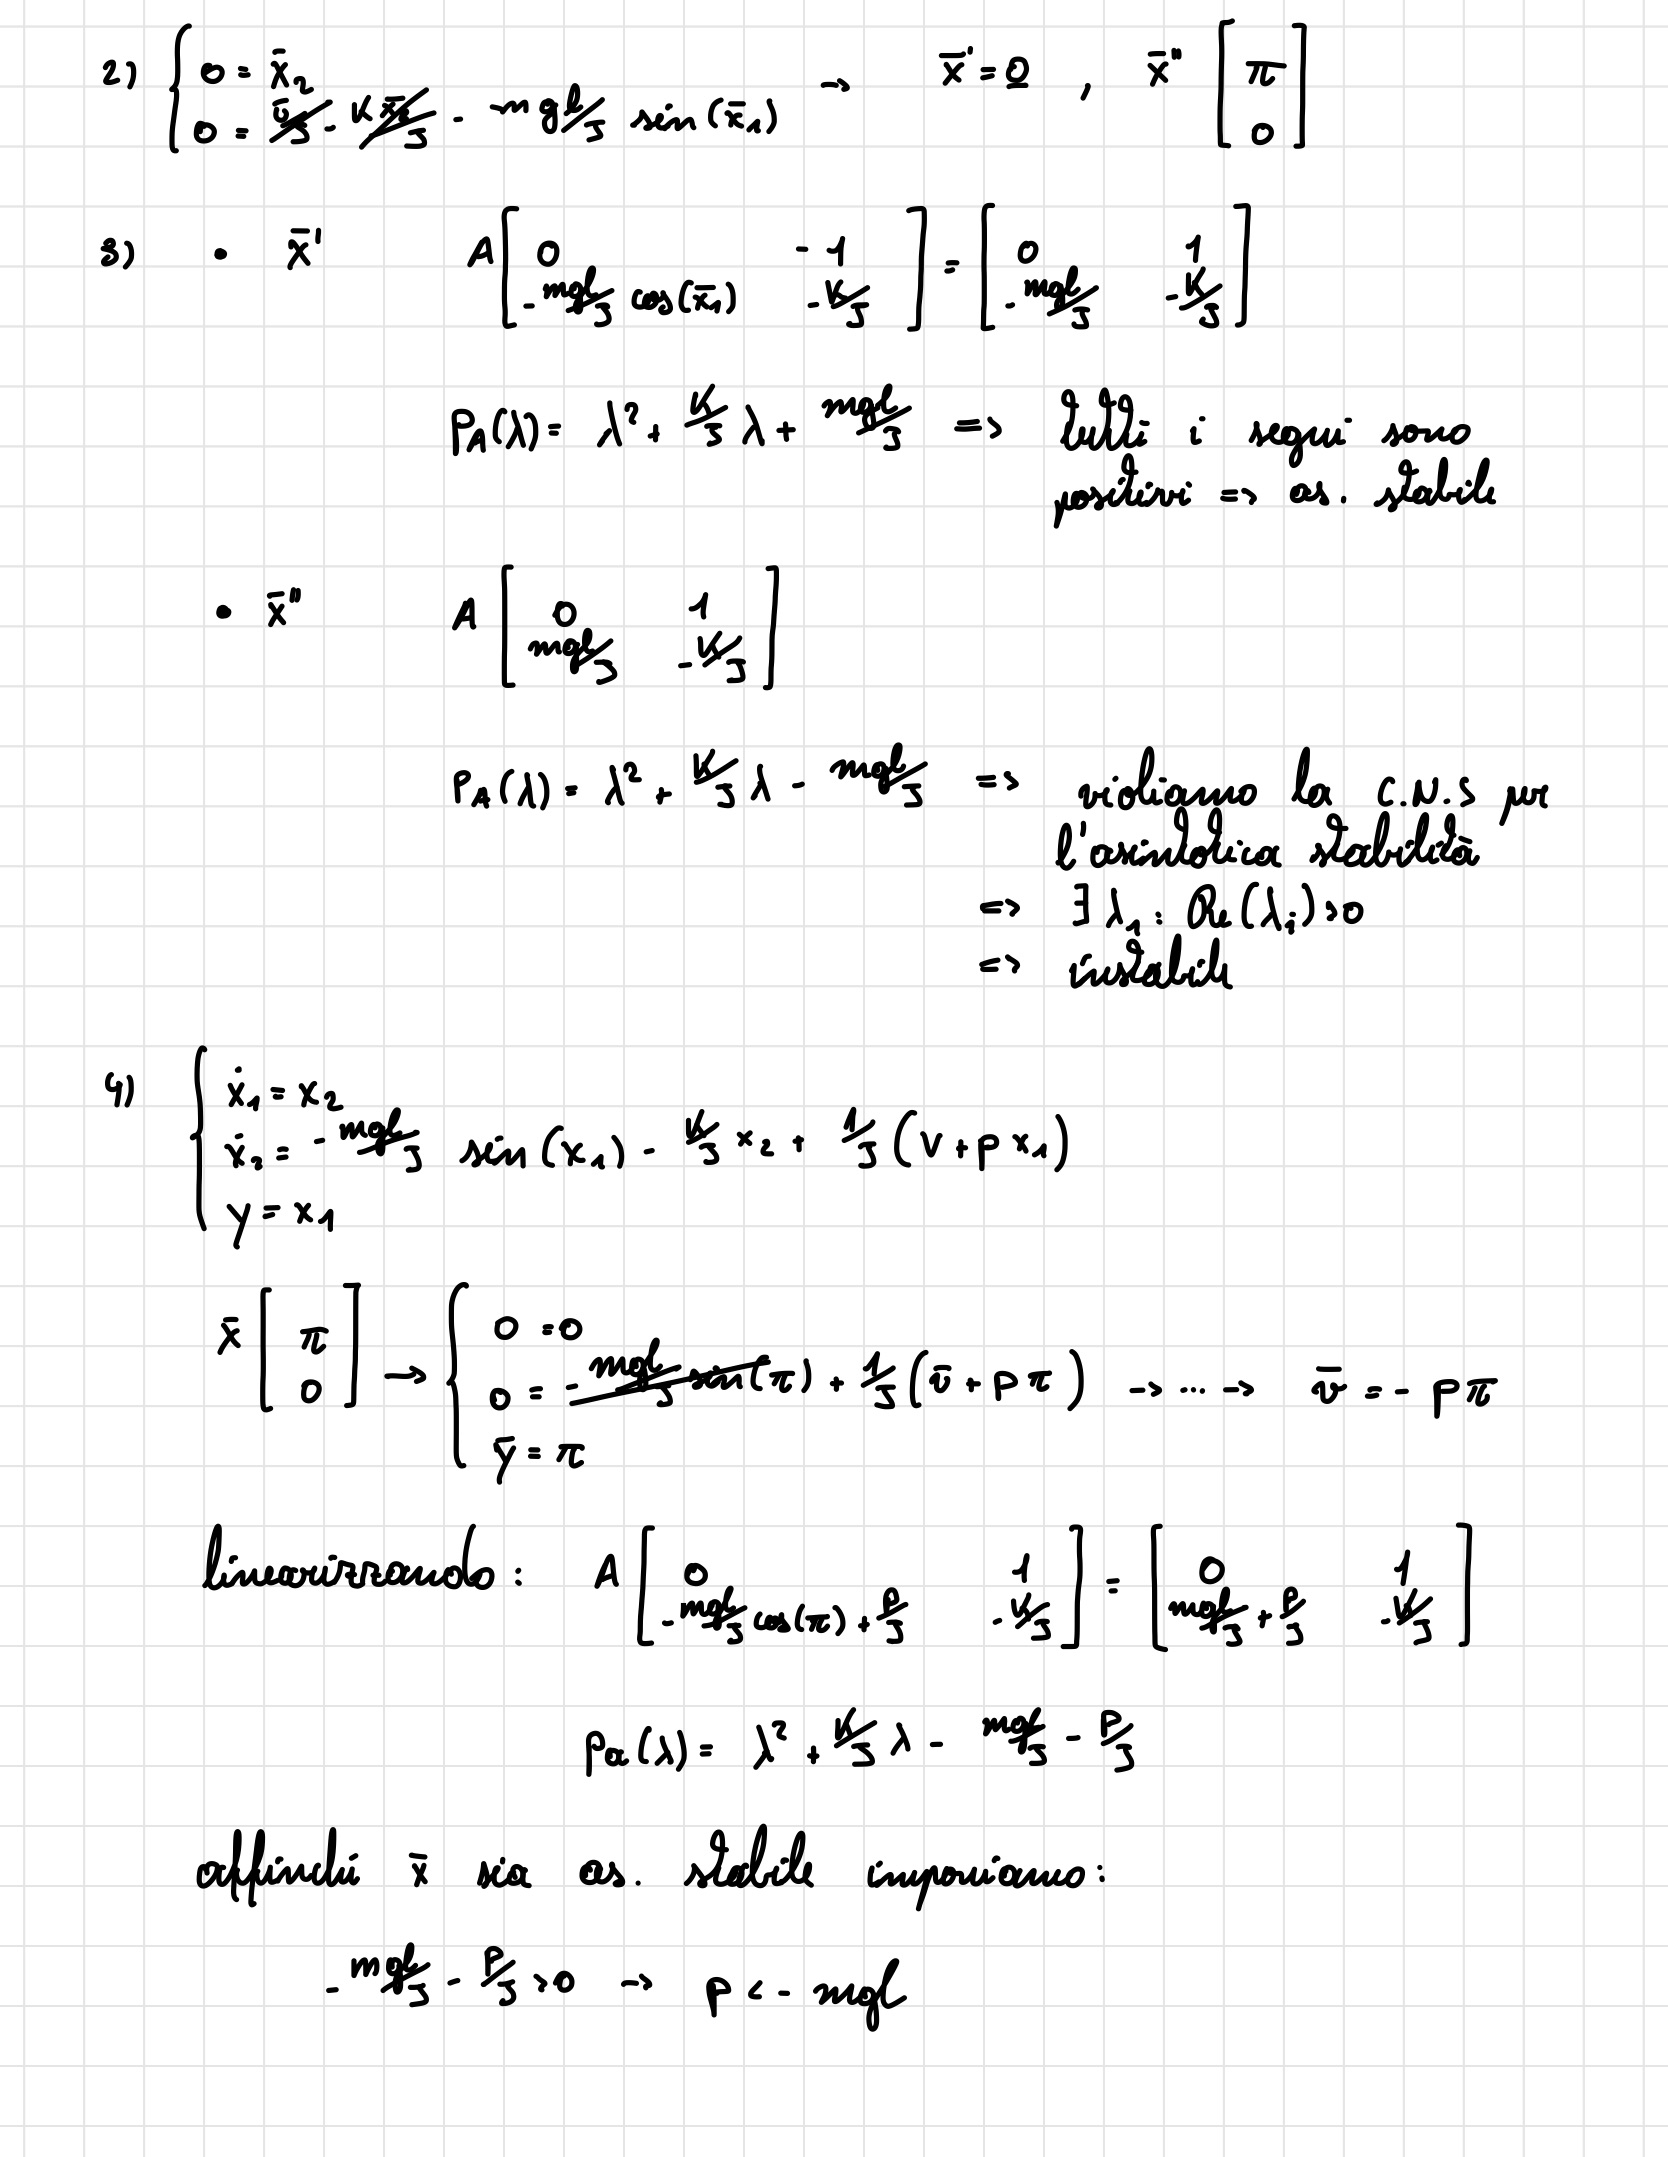 2) { 0 = x̄₂
0 = ū/J - K x̄₂/J - mgl/J sin(x̄₁) → x̄' = 0 , x̄'' [π 0]
3) • x̄' A [0 -1
-mgl/J cos(x̄₁) -K/J] = [0 1
-mgl/J -K/J]
P_A(λ) = λ² + K/J λ + mgl/J => tutti i segni sono
positivi => as. stabile
• x̄'' A [0 1
mgl/J -K/J]
P_A(λ) = λ² + K/J λ - mgl/J => violiamo la C.N.S per
l'asintotica stabilità
=> ∃ λ₁ : Re(λᵢ) > 0
=> instabile
4) { ẋ₁ = x₂
ẋ₂ = -mgl/J sin(x₁) - K/J x₂ + 1/J (v + p x₁)
y = x₁
x̄ [π 0] → { 0 = 0
0 = -mgl/J sin(π) + 1/J (v̄ + p π) → ... → v̄ = - pπ
ȳ = π
linearizzando : A [0 1
-mgl/J cos(π) + p/J -K/J] = [0 1
mgl/J + p/J -K/J]
P_a(λ) = λ² + K/J λ - mgl/J - p/J
affinchè x̄ sia as. stabile imponiamo :
-mgl/J - p/J > 0 → p < - mgl